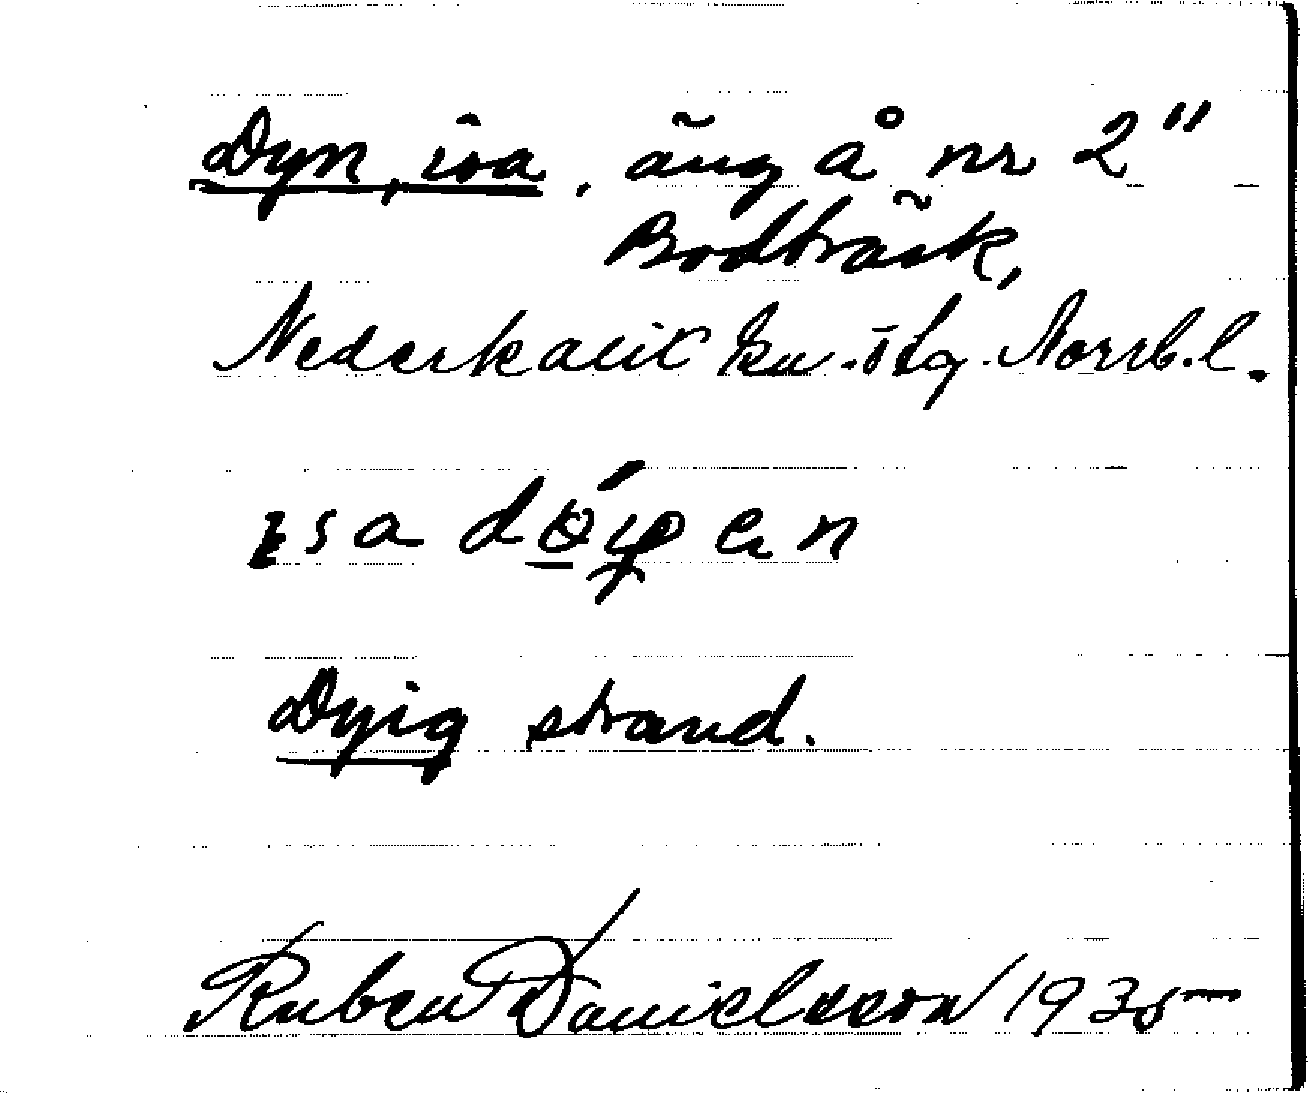 Dyn, isa, äng å nr 2"
Bodträsk,
Nederkalix kn. ötg. Norrb. l.
Dyig strand.
Ruben Danielsson 1935